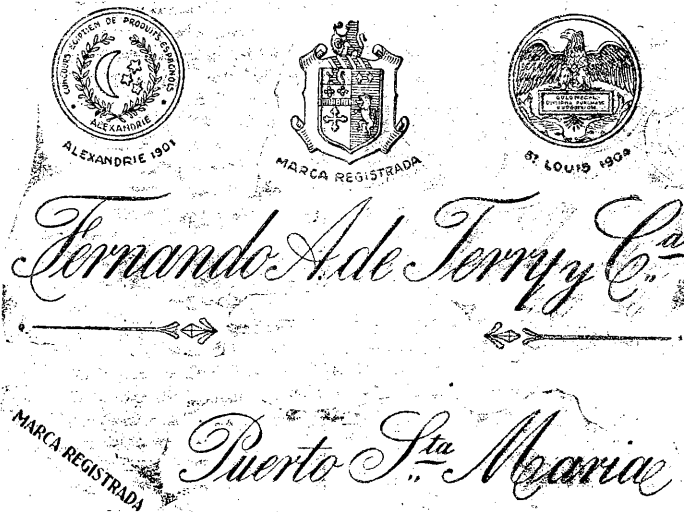 CONCOURS EGIPTIEN DE PRODUITS ESPAGNOLS
ALEXANDRIE
ALEXANDRIE 1901
MARCA REGISTRADA
GOLD MEDAL
ST LOUIS 1904
Fernando A. de Terry y C.ª
MARCA REGISTRADA
Puerto S.ta Maria